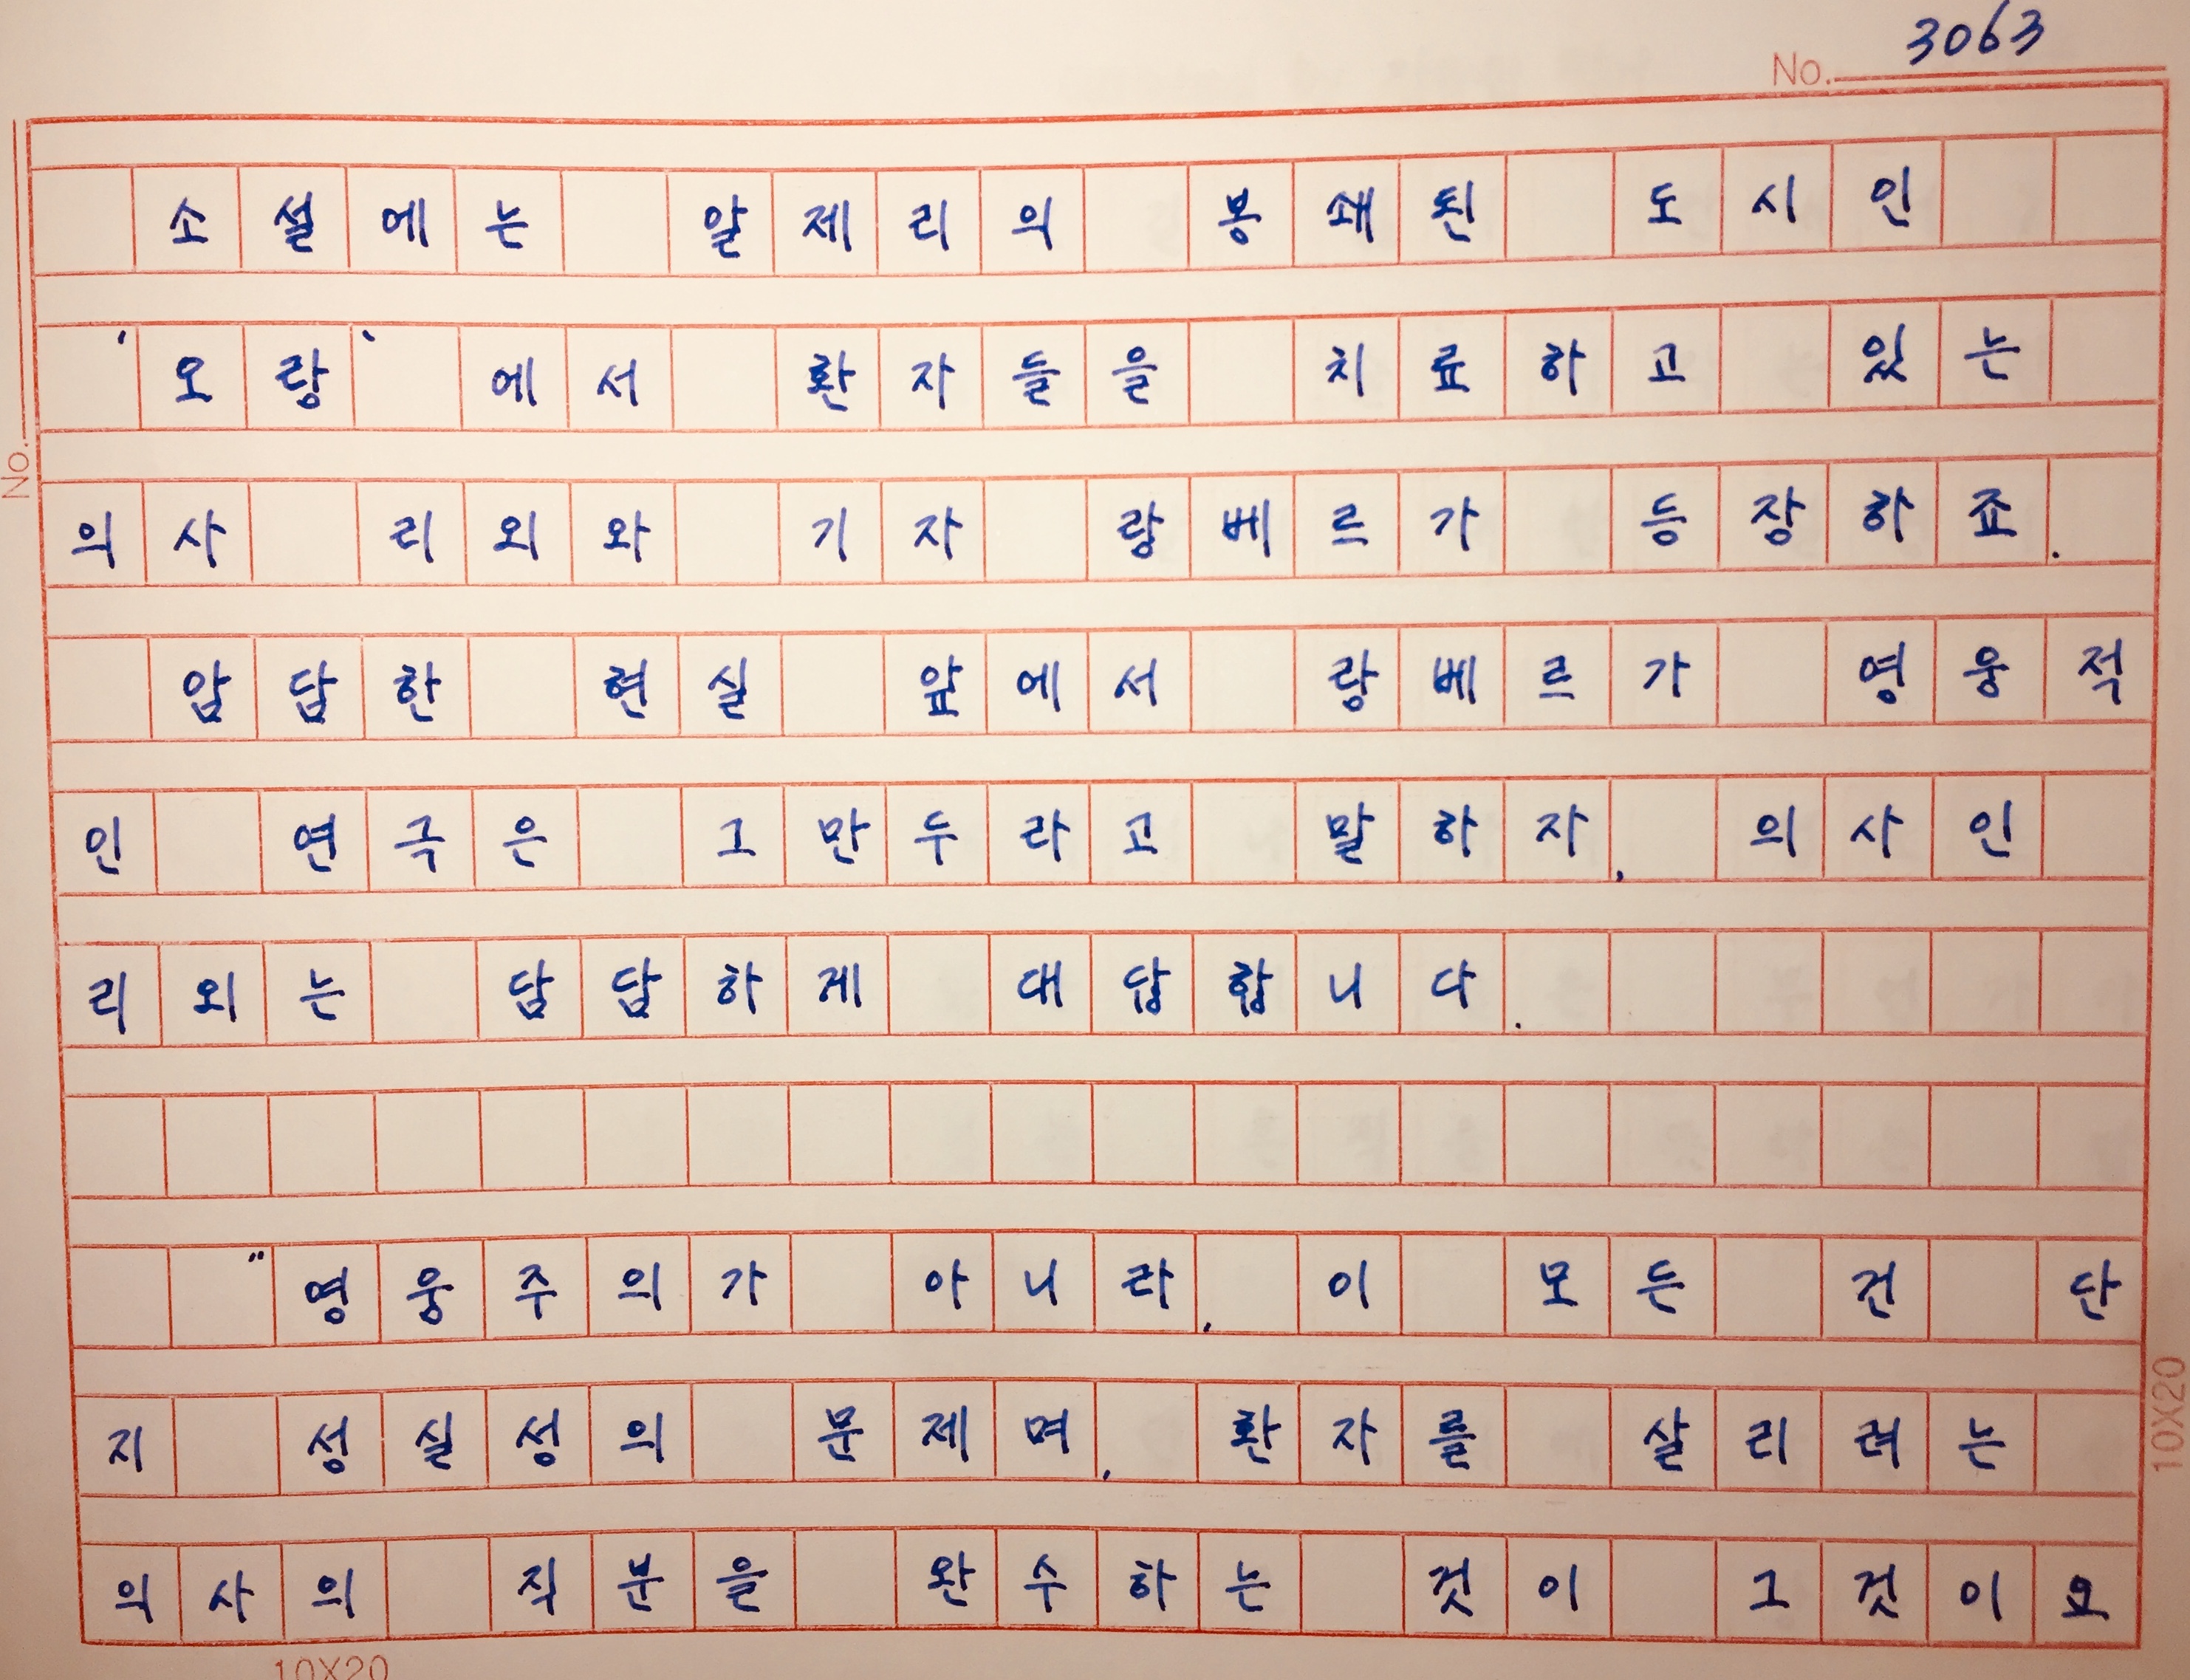 3063
No.
소설에는 알제리의 봉쇄된 도시인
'오랑'에서 환자들을 치료하고 있는
No.
의사 리외와 기자 랑베르가 등장하죠.
암담한 현실 앞에서 랑베르가 영웅적
인 연극은 그만두라고 말하자, 의사인
리외는 담담하게 대답합니다.
"영웅주의가 아니라, 이 모든 건 단
지 성실성의 문제며, 환자를 살리려는
의사의 직분을 완수하는 것이 그것이요
10X20
10X20